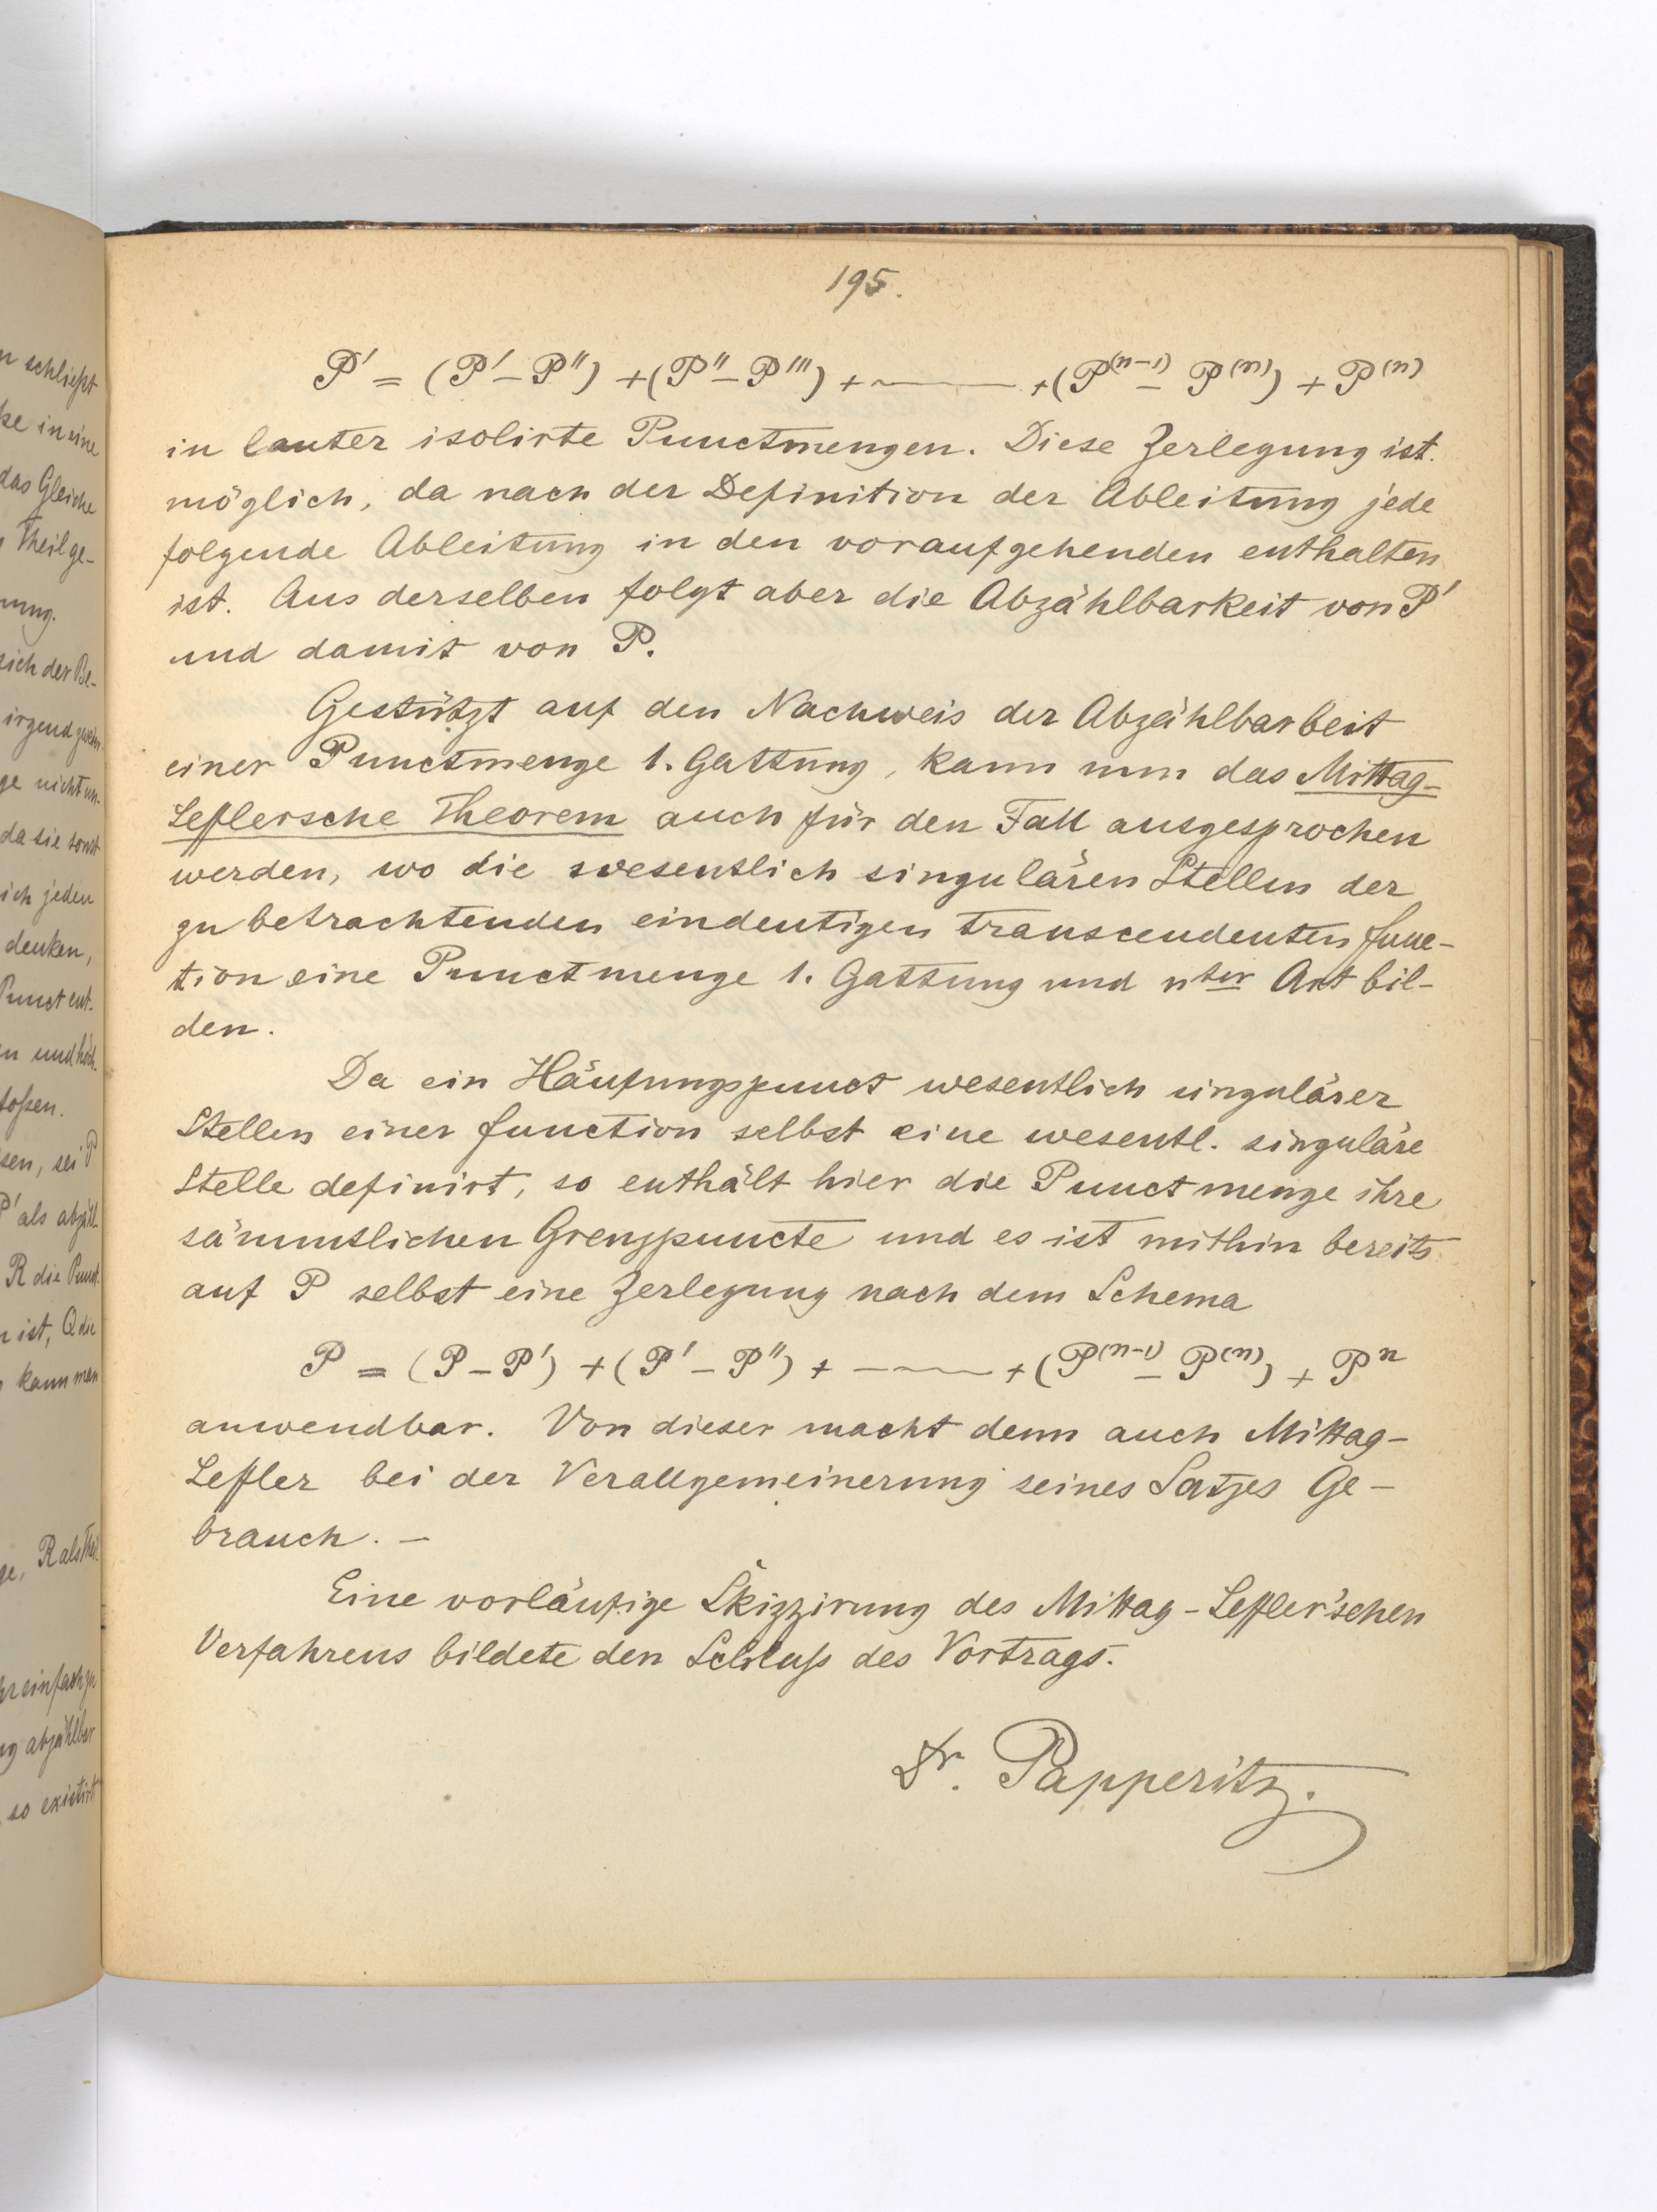 n schließt
ke in eine
das Gleiche
Theil ge-
nung.
sich der Be-
irgend
ge nicht un-
da sie sonst
ich jeden
denken,
Punct ent-
en und höch-
toßen.
sen, sei P
P' als abzähl-
R die Punct-
n ist, Q die
kann man
ge, R als Theil
hr einfach zu
ng abzählbar
so existirt
195.
P' = (P' – P'') + (P'' – P''') + ——— + (P⁽ⁿ⁻¹⁾ – P⁽ⁿ⁾) + P⁽ⁿ⁾
in lauter isolirte Punctmengen. Diese Zerlegung ist
möglich, da nach der Definition der Ableitung jede
folgende Ableitung in den voraufgehenden enthalten
ist. Aus derselben folgt aber die Abzählbarkeit von P'
und damit von P.
Gestützt auf den Nachweis der Abzählbarkeit
einer Punctmenge 1. Gattung, kann nun das Mittag-
Leflersche Theorem auch für den Fall ausgesprochen
werden, wo die wesentlich singulären Stellen der
zu betrachtenden eindeutigen transcendenten Func-
tion eine Punctmenge 1. Gattung und nter Art bil-
den.
Da ein Häufungspunct wesentlich singulärer
Stellen einer Function selbst eine wesentl. singuläre
Stelle definirt, so enthält hier die Punctmenge ihre
sämmtlichen Grenzpuncte und es ist mithin bereits
auf P selbst eine Zerlegung nach dem Schema
P = (P – P') + (P' – P'') + ——— + (P⁽ⁿ⁻¹⁾ – P⁽ⁿ⁾) + Pⁿ
anwendbar. Von dieser macht denn auch Mittag-
Lefler bei der Verallgemeinerung seines Satzes Ge-
brauch. –
Eine vorläufige Skizzirung des Mittag-Lefler'schen
Verfahrens bildete den Schluß des Vortrags.
Dr. Papperitz.